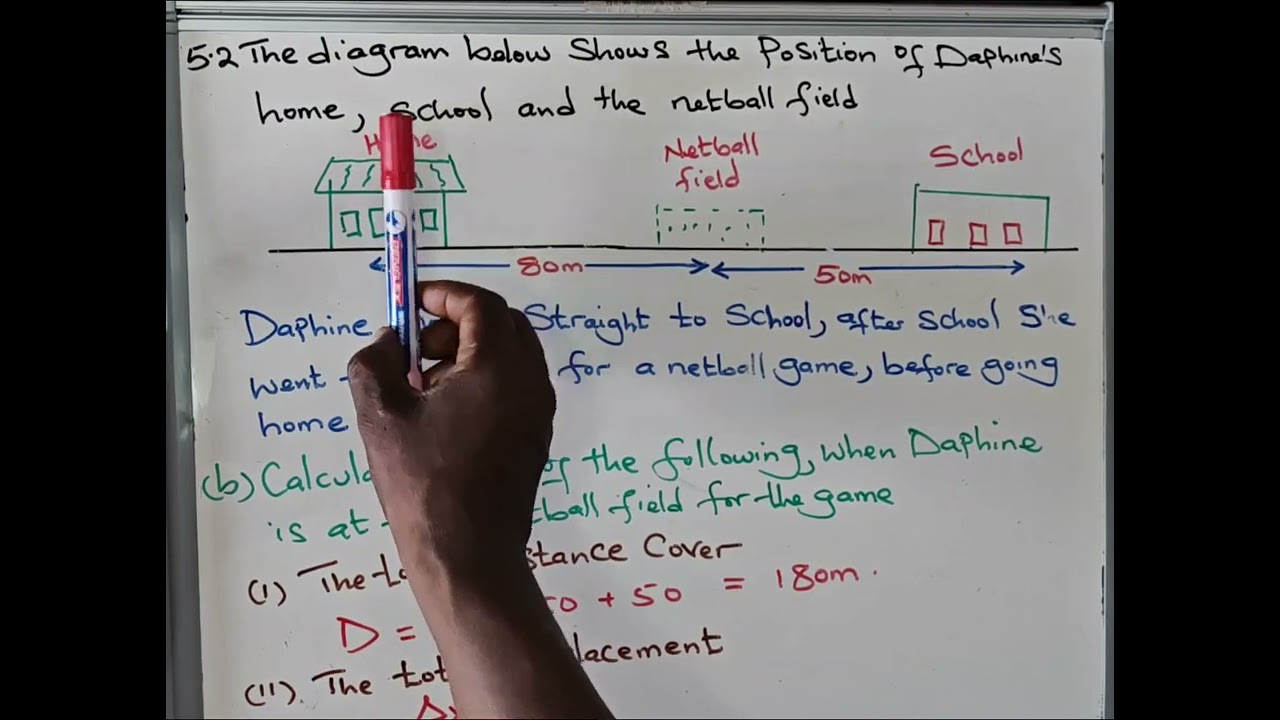 5.2 The diagram below Shows the Position of Daphine's
home, School and the netball field
Netball
field
School
80m
50m
Daphine Straight to School, after school She
went for a netball game, before going
home
(b) of the following, when Daphine
is at field for the game
(I) The Cover
D = + 50 = 180m.
(II). The